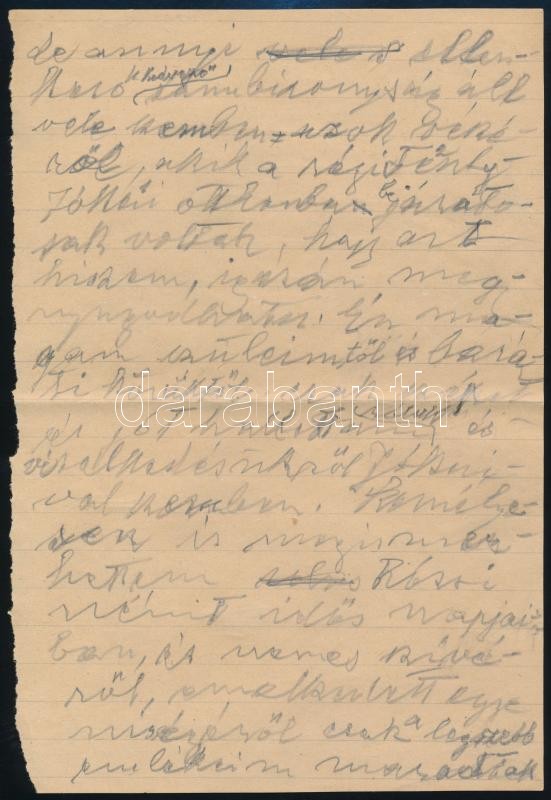 de annyi vele s ellen-
kező kedvező tanubizonyság áll
vele szemben azok részé-
ről, akik a régi
Jókai otthonban bejárato-
sak voltak, hogy azt
hiszem, igazán meg-
nyugodhatni. Én ma-
gam szüleimtől és bará-
ti
és jót hallottam és
viselkedésükről Jókai-
val szemben. Személye-
sen is megismer-
hettem Rózsi
nénit idős napjai-
ban, és nemes szívé-
ről, emelkedett egyé-
niségéről csak a legszebb
emlékeim maradtak
darabanth